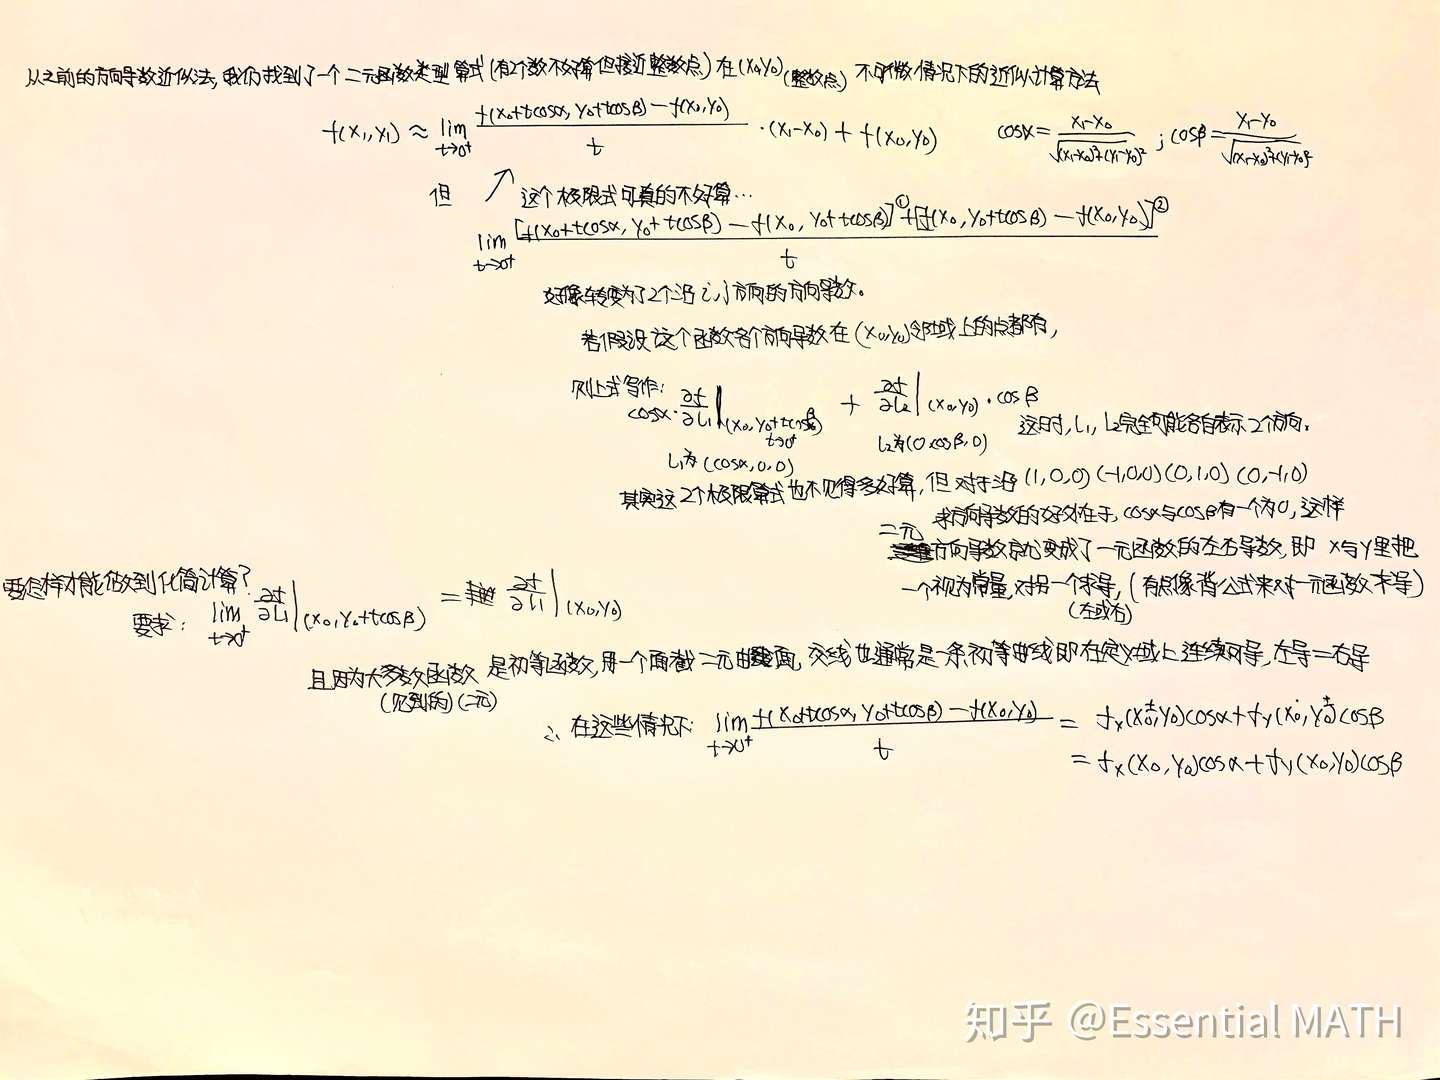 从之前的方向导数近似法,我们找到了一个二元函数类型算式(有2个数不好算但接近整数点)在(x₀,y₀)(整数点) 不可微情况下的近似计算方法
f(x₁,y₁) ≈ lim t→0⁺ f(x₀+tcosα, y₀+tcosβ)-f(x₀,y₀) / t ·(x₁-x₀)+f(x₀,y₀) cosα= x₁-x₀ / √(x₁-x₀)²+(y₁-y₀)² ; cosβ= y₁-y₀ / √(x₁-x₀)²+(y₁-y₀)²
但 ↗ 这个极限式可真的不好算…
lim t→0⁺ [f(x₀+tcosα, y₀+tcosβ)-f(x₀, y₀+tcosβ)]①+[f(x₀, y₀+tcosβ)-f(x₀,y₀)]② / t
好像转变为了2个沿i,j方向的方向导数。
若假设这个函数各个方向导数在(x₀,y₀)邻域上的点都有,
则上式写作:
cosα·∂f/∂l₁|(x₀,y₀+tcosβ) t→0⁺ + ∂f/∂l₂|(x₀,y₀)·cosβ
这时,l₁, l₂完全可能各自表示2个方向。
l₁为(cosα,0,0) l₂为(0,cosβ,0)
其实这2个极限算式也不见得多好算,但对于沿(1,0,0)(-1,0,0)(0,1,0)(0,-1,0)
求方向导数的好处在于,cosα与cosβ有一个为0,这样
二元方向导数就变成了一元函数的左右导数,即x与y里把
一个视为常量,对另一个求导,(有点像背公式来对一元函数求导)
(左或右)
要怎样才能做到化简计算?
要求: lim t→0⁺ ∂f/∂l₁|(x₀,y₀+tcosβ) = ∂f/∂l₁|(x₀,y₀)
且因为大多数函数是初等函数,用一个面截二元曲面,交线也通常是一条初等曲线即在定义域上连续可导,左导=右导
(见到的)(二元)
∴ 在这些情况下: lim t→0⁺ f(x₀+tcosα, y₀+tcosβ)-f(x₀,y₀) / t = fx(x₀±,y₀)cosα+fy(x₀,y₀±)cosβ
= fx(x₀,y₀)cosα+fy(x₀,y₀)cosβ
知乎 @Essential MATH